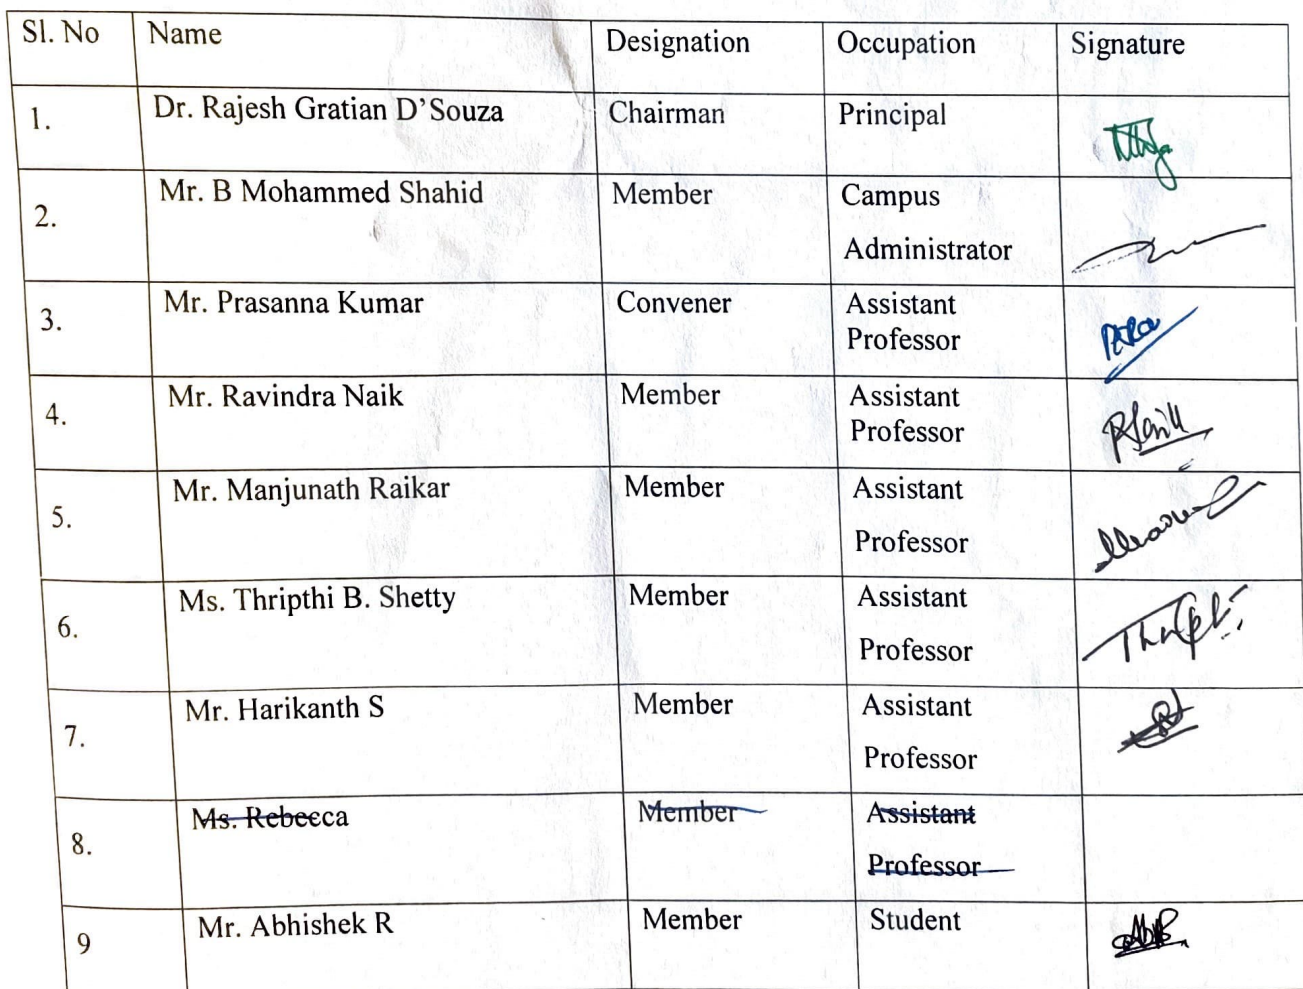 Sl. No Name Designation Occupation Signature
1. Dr. Rajesh Gratian D'Souza Chairman Principal
2. Mr. B Mohammed Shahid Member Campus
Administrator
3. Mr. Prasanna Kumar Convener Assistant
Professor
4. Mr. Ravindra Naik Member Assistant
Professor
5. Mr. Manjunath Raikar Member Assistant
Professor
6. Ms. Thripthi B. Shetty Member Assistant
Professor
7. Mr. Harikanth S Member Assistant
Professor
8. Ms. Rebecca Member Assistant
Professor
9 Mr. Abhishek R Member Student